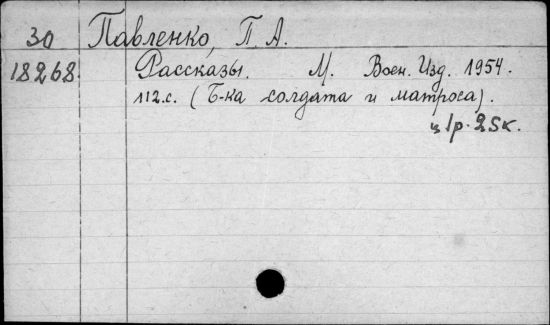 30 Павленко, П. А.
18268. Рассказы. М. Воен. Изд. 1954.
112.с. (Б-ка солдата и матроса).
ц 1р. 25к.